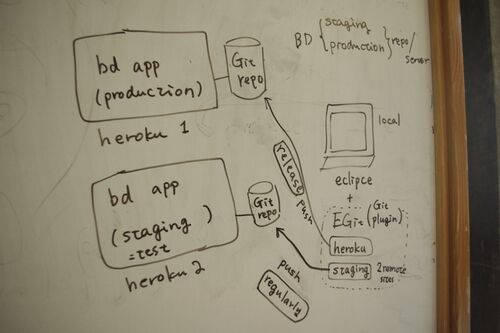 bd app
(production)
Git
repo
heroku 1
BD { staging
production } repo/
server
local
eclipce
+
EGit (Git
plugin)
heroku
staging
2 remote
sites
release
push
bd app
(staging
=test )
Git
repo
heroku 2
push
regularly